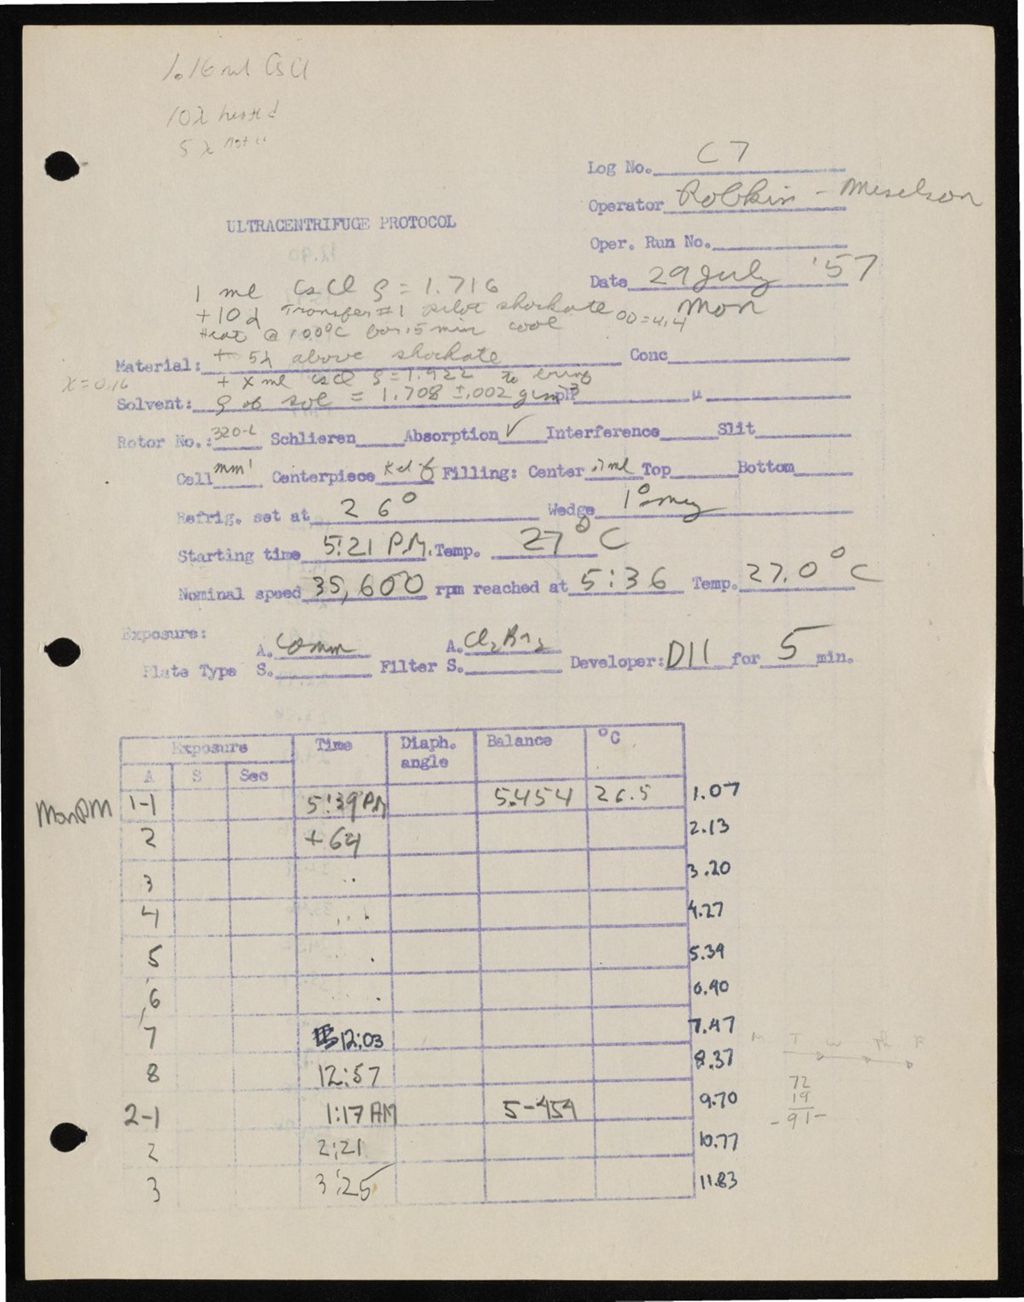 1.16 ml CsCl
10λ heated
5λ not "
Log No. C7
Operator Robkin - Meselson
ULTRACENTRIFUGE PROTOCOL
Oper. Run No.
Date 29 July '57
Mon
1 ml CsCl ρ = 1.716
+10λ Transfer #1 pilot shockate OD=4.4
Heat @ 100°C for 5 min cool
Material: + 5λ above shockate Conc
x = 0.16
+ x ml CsCl ρ=1.922 to bring
Solvent: ρ of sol = 1.708 ±.002 pH μ
Rotor No.: 320-L Schlieren Absorption ✓ Interference Slit
Cell mm' Centerpiece Kel f Filling: Center .7 ml Top Bottom
Refrig. set at 26° Wedge 1° neg
Starting time 5:21 P.M. Temp. 27°C
Nominal speed 35,600 rpm reached at 5:36 Temp. 27.0°C
Exposure:
A. Comm A. Cl2Br2
Plate Type S. Filter S. Developer: D11 for 5 min.
Exposure Time Diaph. angle Balance °C
A S Sec
Mon PM 1-1 5:39 PM 5.454 26.5 1.07
2 +64 2.13
3 .. 3.20
4 ... 4.27
5 . 5.34
6 .. 6.40
7 12:03 7.47
M T W Th F
8 12:57 8.37
72
19
-91-
2-1 1:17 AM 5-454 9.70
2 2:21 10.77
3 3:25 11.83